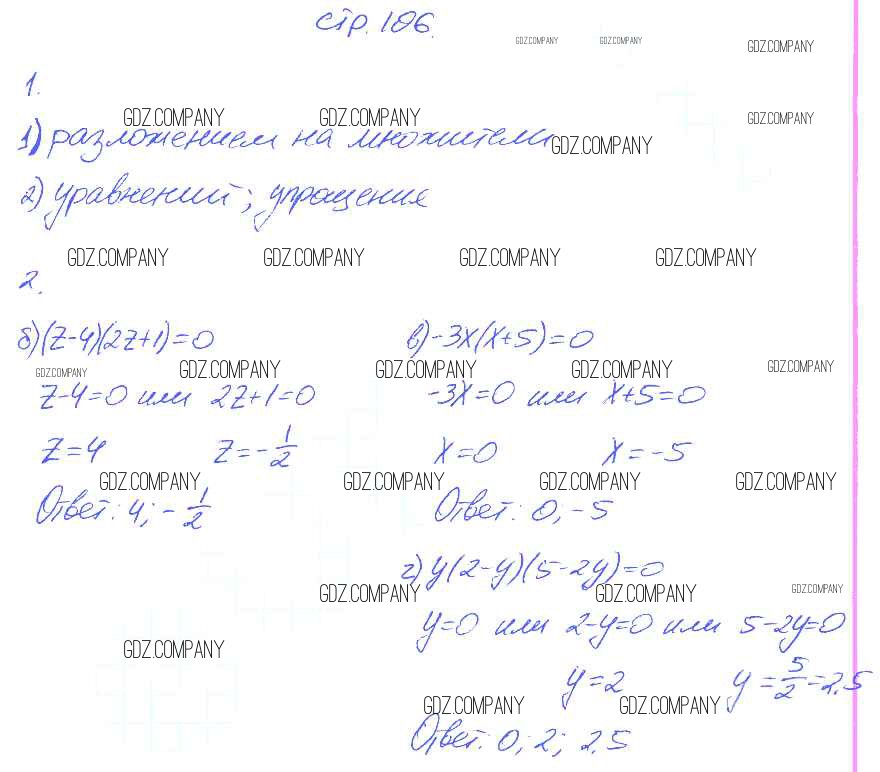 стр. 106.
GDZ.COMPANY GDZ.COMPANY GDZ.COMPANY
1.
GDZ.COMPANY GDZ.COMPANY GDZ.COMPANY
1) разложением на множители GDZ.COMPANY
2) уравнений; упрощения
GDZ.COMPANY GDZ.COMPANY GDZ.COMPANY GDZ.COMPANY
2.
б) (z-4)(2z+1)=0
GDZ.COMPANY GDZ.COMPANY
z-4=0 или 2z+1=0
z=4 z=-1/2
GDZ.COMPANY
Ответ: 4; -1/2
в) -3x(x+5)=0
GDZ.COMPANY GDZ.COMPANY GDZ.COMPANY
-3x=0 или x+5=0
x=0 x=-5
GDZ.COMPANY GDZ.COMPANY GDZ.COMPANY
Ответ: 0; -5
г) y(2-y)(5-2y)=0
GDZ.COMPANY GDZ.COMPANY GDZ.COMPANY
y=0 или 2-y=0 или 5-2y=0
GDZ.COMPANY
y=2 y=5/2=2.5
GDZ.COMPANY GDZ.COMPANY
Ответ: 0; 2; 2.5